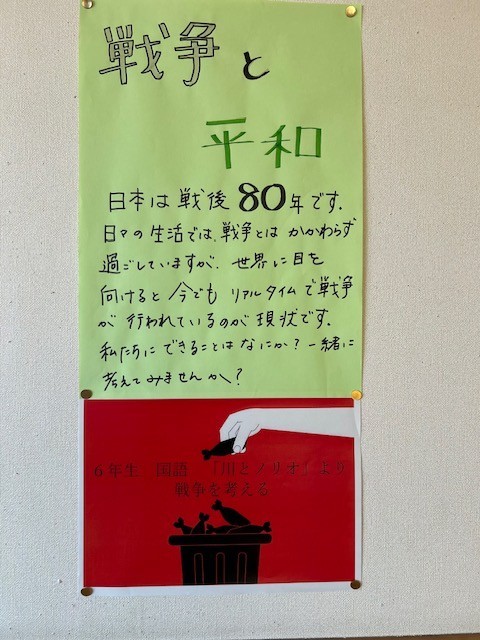 戦争と
平和
日本は戦後80年です。
日々の生活では、戦争とは かかわらず
過ごしていますが、世界に目を
向けると今でも リアルタイムで戦争
が 行われているのが 現状です。
私たちにできることはなにか？一緒に
考えてみませんか？
6年生 国語 「川とノリオ」より
戦争を考える